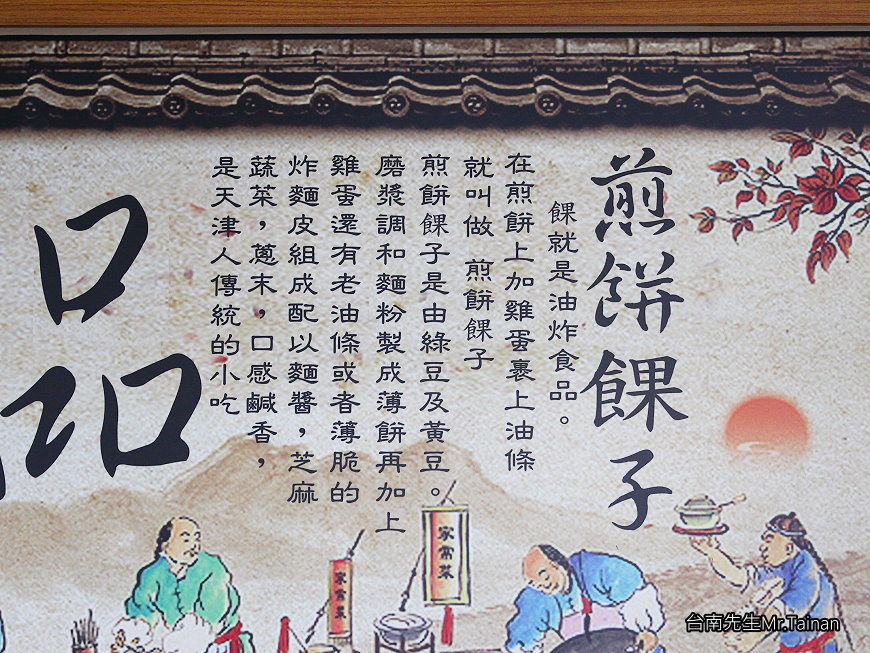 煎餅餜子
餜就是油炸食品。
在煎餅上加雞蛋裹上油條
就叫做 煎餅餜子
煎餅餜子是由綠豆及黃豆。
磨漿調和麵粉製成薄餅再加上
雞蛋還有老油條或者薄脆的
炸麵皮組成配以麵醬，芝麻
蔬菜，蔥末，口感鹹香，
是天津人傳統的小吃
品
家常菜
家常菜
台南先生Mr.Tainan